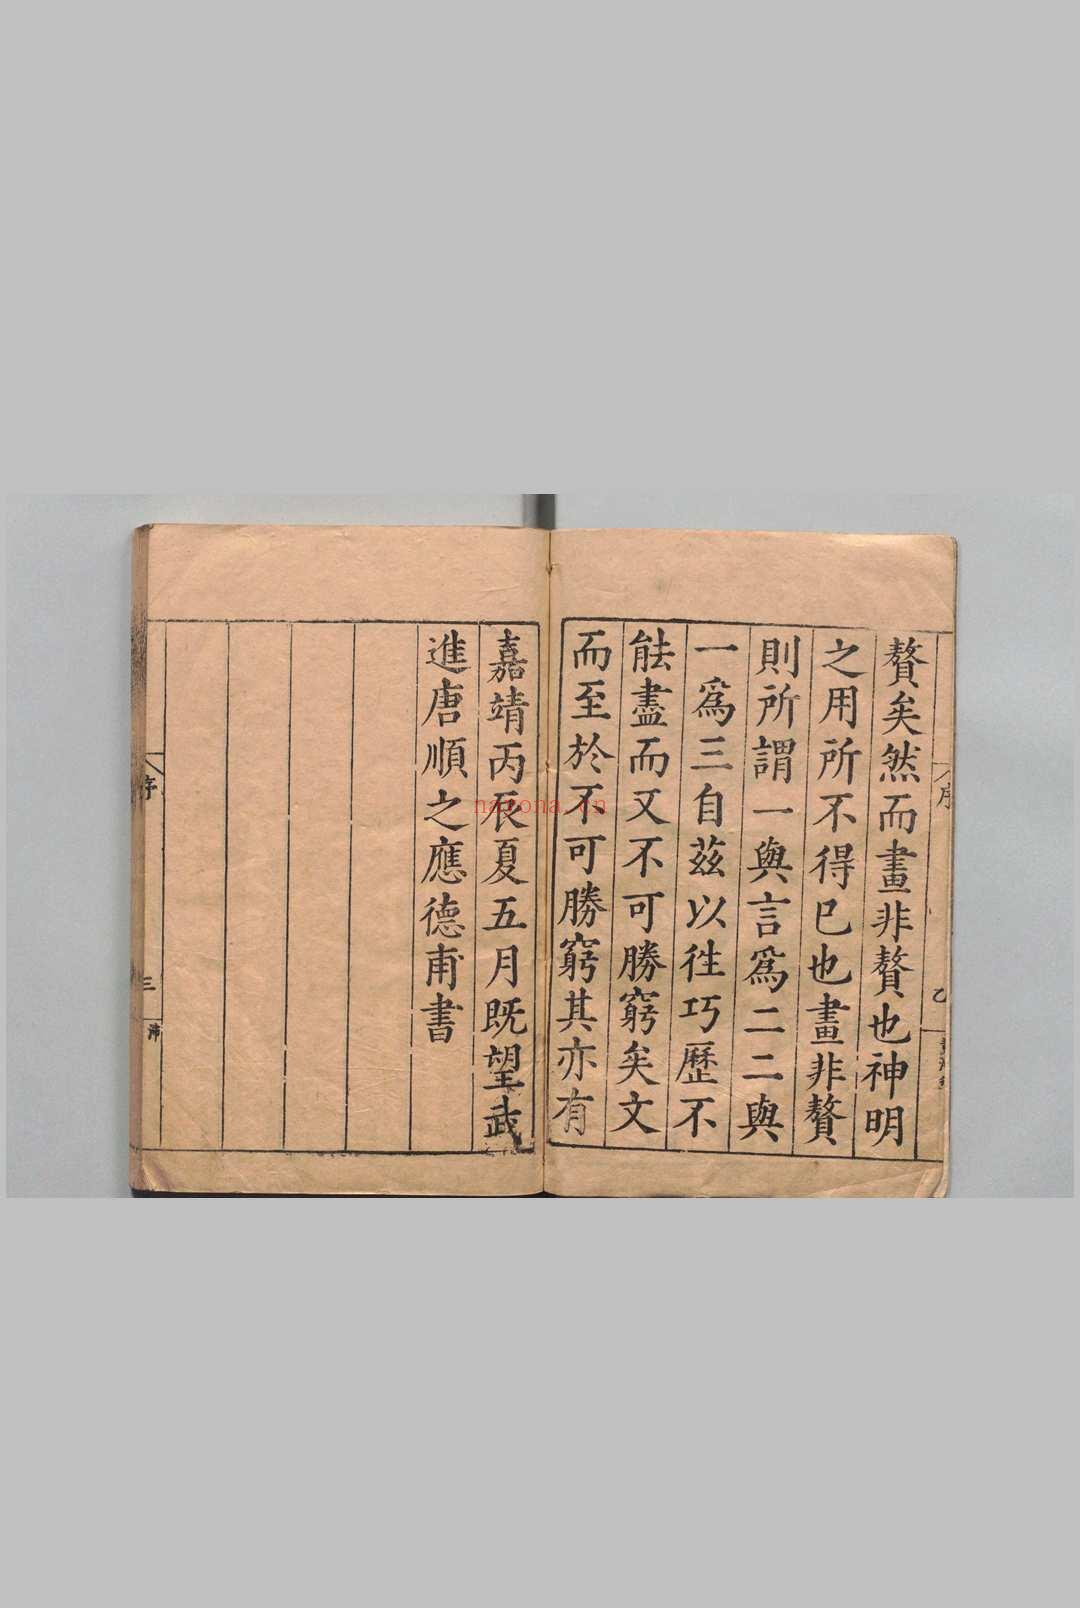 贅矣然而畫非贅也神明
之用所不得已也畫非贅
則所謂一與言爲二二與
一爲三自茲以徃巧歷不
能盡而又不可勝窮矣文
而至於不可勝窮其亦有
嘉靖丙辰夏五月既望武
進唐順之應德甫書
序
序
三
nayona.cn